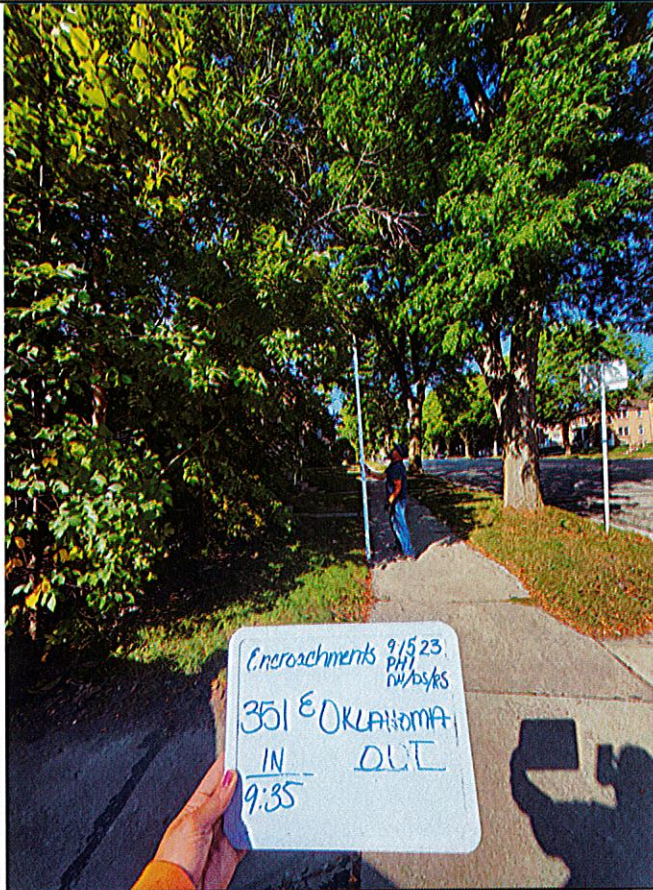 Encroachments 9/5 23
PH1
NW/DS/RS
351 E OKLAHOMA
IN OUT
9:35